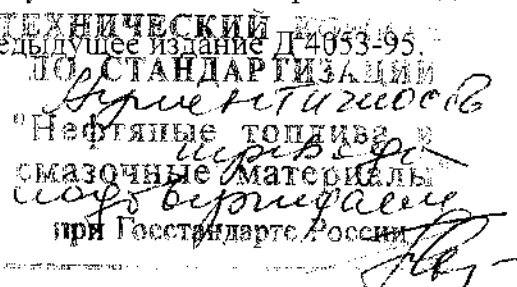 ТЕХНИЧЕСКИЙ КОМИТЕТ
едыдущее издание Д 4053-95.
ПО СТАНДАРТИЗАЦИИ
Аутентичность
"Нефтяные топлива и
перевода
смазочные материалы"
подтверждаем
при Госстандарте России